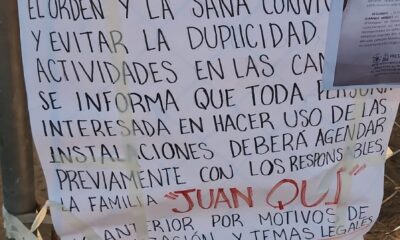 EL ORDEN Y LA SANA CONVIV
Y EVITAR LA DUPLICIDAD
ACTIVIDADES EN LAS CAN
SE INFORMA QUE TODA PERSONA
INTERESADA EN HACER USO DE LAS
INSTALACIONES DEBERÁ AGENDAR
PREVIAMENTE CON LOS RESPONSABLES,
LA FAMILIA "JUAN QUI"
ANTERIOR POR MOTIVOS DE
ZACIÓN Y TEMAS LEGALES